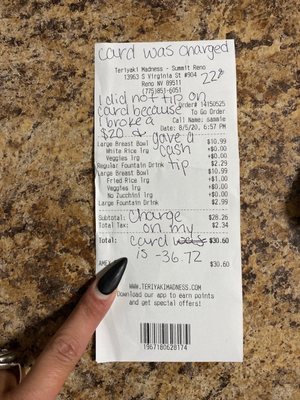 card was charged
Teriyaki Madness - Summit Reno
13963 S Virginia St #904
Reno NV 89511
(775)851-6051
22%
I did not tip on
card because
I broke a
$20 & gave a
cash
tip
Order# 14150525
To Go Order
Call Name: sammie
Date: 8/5/20, 6:57 PM
Large Breast Bowl $10.99
White Rice lrg +$0.00
Veggies lrg +$0.00
Regular Fountain Drink $2.29
Large Breast Bowl $10.99
Fried Rice lrg +$1.00
Veggies lrg +$0.00
No Zucchini lrg +$0.00
Large Fountain Drink $2.99
Subtotal: $28.26
Total Tax: $2.34
Total: $30.60
Charge
on my
card
is -36.72
AMEX $30.60
WWW.TERIYAKIMADNESS.COM
Download our app to earn points
and get special offers!
1967180628174